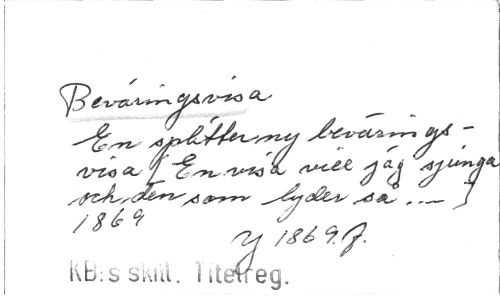 Beväringsvisa
En splitter ny bevärings-
visa [En visa vill jag sjunga
och den som lyder så ... ]
1869
Y 1869.f.
KB:s skill. Titelreg.